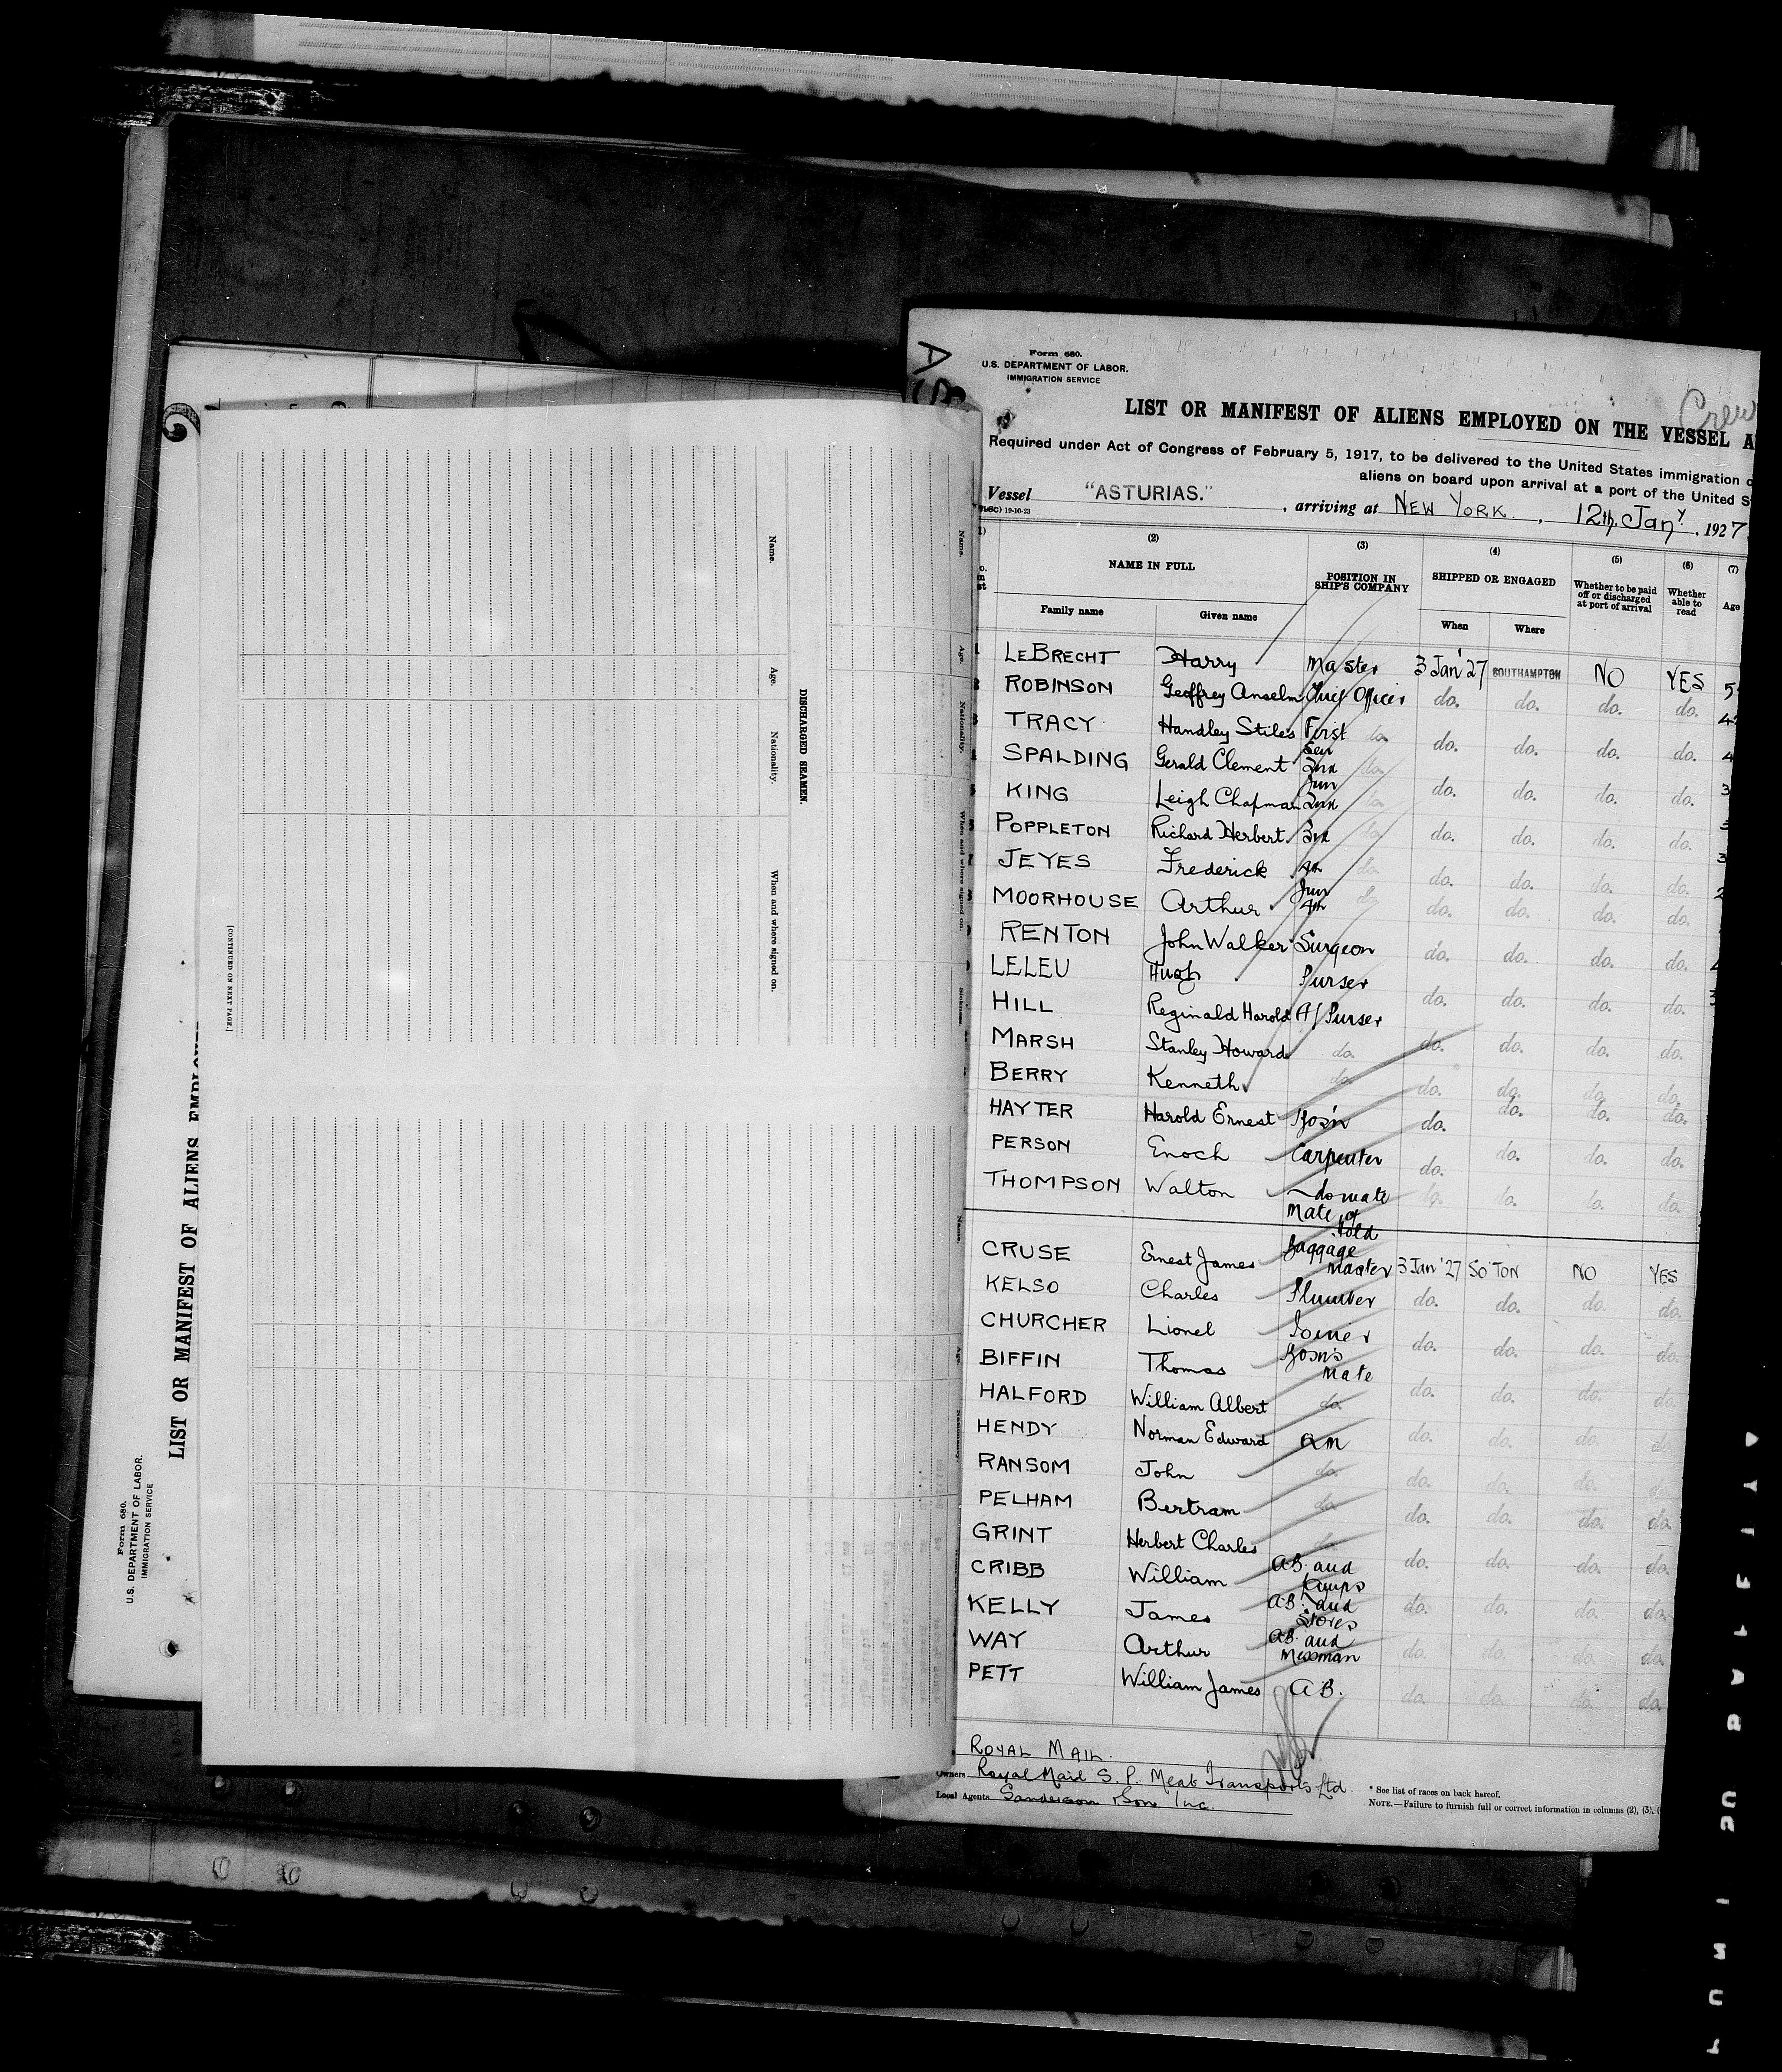 Form 680.
U.S. DEPARTMENT OF LABOR.
IMMIGRATION SERVICE
Crew
LIST OR MANIFEST OF ALIENS EMPLOYED ON THE VESSEL A
Required under Act of Congress of February 5, 1917, to be delivered to the United States immigration o
aliens on board upon arrival at a port of the United S
Vessel "ASTURIAS." , arriving at NEW YORK. , 12th. Jany , 1927
19-10-23
(2) (3) (4) (5) (6) (7)
NAME IN FULL POSITION IN SHIP'S COMPANY SHIPPED OR ENGAGED Whether to be paid off or discharged at port of arrival Whether able to read Age
Family name Given name When Where
LEBRECHT Harry Master 3 Jan '27 SOUTHAMPTON NO YES 5
ROBINSON Geoffrey Anselm Chief Officer do. do. do. do. 4
TRACY Handley Stiles First do. do. do. do. do. 4
SPALDING Gerald Clement Sen 2nd do.
KING Leigh Chapman Jun 2nd do. do. do. do. do. 3
POPPLETON Richard Herbert 3rd do. do. do. do. do.
JEYES Frederick 4th do. do. do. do. do.
MOORHOUSE Arthur Jun 4th do. do. do. do. do.
RENTON John Walker Surgeon do. do. do. do.
LELEU Hugh Purser
HILL Reginald Harold A/Purser do. do. do. do.
MARSH Stanley Howard do. do. do. do. do.
BERRY Kenneth do. do. do. do. do.
HAYTER Harold Ernest Bos'n do. do. do. do.
PERSON Enoch Carpenter do. do. do. do.
THOMPSON Walton do mate do. do. do. do.
Mate of Hold
CRUSE Ernest James Baggage Master 3 Jan '27 SO'TON NO YES
KELSO Charles Plumber do. do. do. do.
CHURCHER Lionel Joiner do. do. do. do.
BIFFIN Thomas Bosn's Mate
HALFORD William Albert do. do. do. do. do.
HENDY Norman Edward QM do. do. do. do.
RANSOM John do. do. do. do. do.
PELHAM Bertram do. do. do. do. do.
GRINT Herbert Charles do.
CRIBB William A.B. and Lamps do. do. do. do.
KELLY James A.B. and Stores do. do. do. do.
WAY Arthur A.B. and Messman do. do. do. do.
PETT William James A.B. do. do. do. do.
ROYAL MAIL.
Owners Royal Mail S. P. Meat Transports Ltd.
Local Agents Sanderson & Son Inc.
* See list of races on back hereof.
NOTE.—Failure to furnish full or correct information in columns (2), (3),
Name. Age. Nationality. When and where signed on.
DISCHARGED SEAMEN.
Name. Age. Nationality. When and where signed on.
[CONTINUED ON NEXT PAGE.]
LIST OR MANIFEST OF ALIENS EMPLOY
Form 680.
U.S. DEPARTMENT OF LABOR.
IMMIGRATION SERVICE